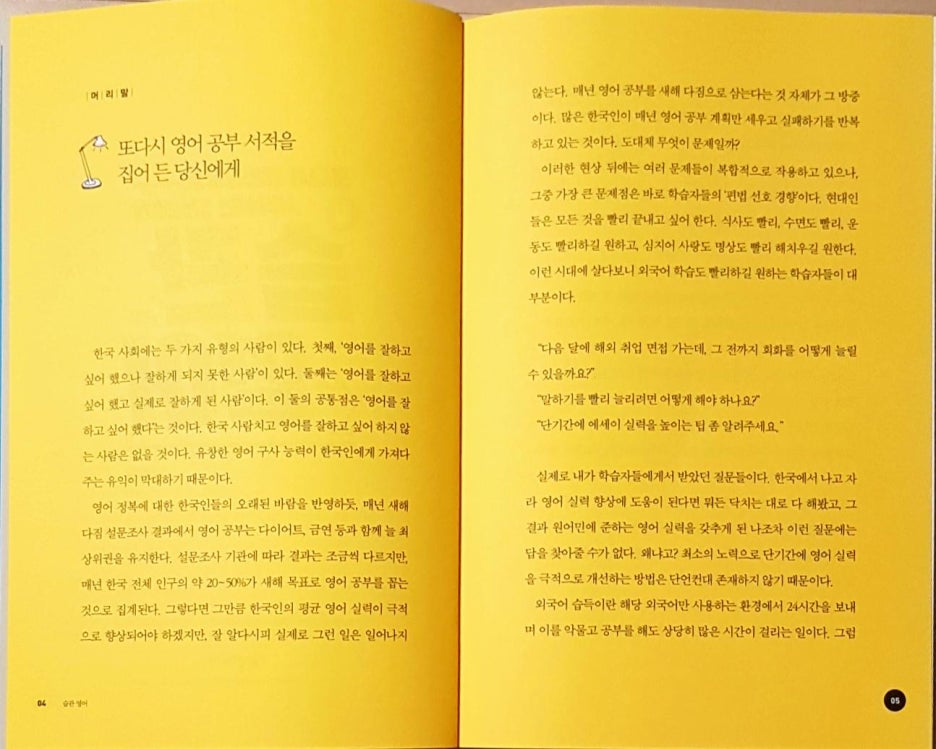 |머|리|말|
또다시 영어 공부 서적을
집어 든 당신에게
한국 사회에는 두 가지 유형의 사람이 있다. 첫째, '영어를 잘하고
싶어 했으나 잘하게 되지 못한 사람'이 있다. 둘째는 '영어를 잘하고
싶어 했고 실제로 잘하게 된 사람'이다. 이 둘의 공통점은 '영어를 잘
하고 싶어 했다'는 것이다. 한국 사람치고 영어를 잘하고 싶어 하지 않
는 사람은 없을 것이다. 유창한 영어 구사 능력이 한국인에게 가져다
주는 유익이 막대하기 때문이다.
영어 정복에 대한 한국인들의 오래된 바람을 반영하듯, 매년 새해
다짐 설문조사 결과에서 영어 공부는 다이어트, 금연 등과 함께 늘 최
상위권을 유지한다. 설문조사 기관에 따라 결과는 조금씩 다르지만,
매년 한국 전체 인구의 약 20~50%가 새해 목표로 영어 공부를 꼽는
것으로 집계된다. 그렇다면 그만큼 한국인의 평균 영어 실력이 극적
으로 향상되어야 하겠지만, 잘 알다시피 실제로 그런 일은 일어나지
04 습관 영어
않는다. 매년 영어 공부를 새해 다짐으로 삼는다는 것 자체가 그 방증
이다. 많은 한국인이 매년 영어 공부 계획만 세우고 실패하기를 반복
하고 있는 것이다. 도대체 무엇이 문제일까?
이러한 현상 뒤에는 여러 문제들이 복합적으로 작용하고 있으나,
그중 가장 큰 문제점은 바로 학습자들의 '편법 선호 경향'이다. 현대인
들은 모든 것을 빨리 끝내고 싶어 한다. 식사도 빨리, 수면도 빨리, 운
동도 빨리하길 원하고, 심지어 사랑도 명상도 빨리 해치우길 원한다.
이런 시대에 살다보니 외국어 학습도 빨리하길 원하는 학습자들이 대
부분이다.
"다음 달에 해외 취업 면접 가는데, 그 전까지 회화를 어떻게 늘릴
수 있을까요?"
"말하기를 빨리 늘리려면 어떻게 해야 하나요?"
"단기간에 에세이 실력을 높이는 팁 좀 알려주세요."
실제로 내가 학습자들에게서 받았던 질문들이다. 한국에서 나고 자
라 영어 실력 향상에 도움이 된다면 뭐든 닥치는 대로 다 해봤고, 그
결과 원어민에 준하는 영어 실력을 갖추게 된 나조차 이런 질문에는
답을 찾아줄 수가 없다. 왜냐고? 최소의 노력으로 단기간에 영어 실력
을 극적으로 개선하는 방법은 단언컨대 존재하지 않기 때문이다.
외국어 습득이란 해당 외국어만 사용하는 환경에서 24시간을 보내
며 이를 악물고 공부를 해도 상당히 많은 시간이 걸리는 일이다. 그럼
05